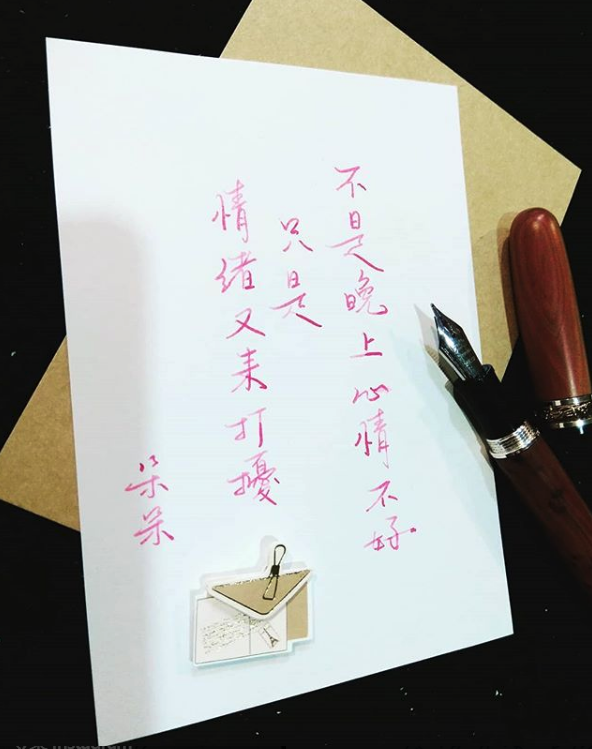 不是晚上心情不好
只是
情緒又來打擾
朵呆